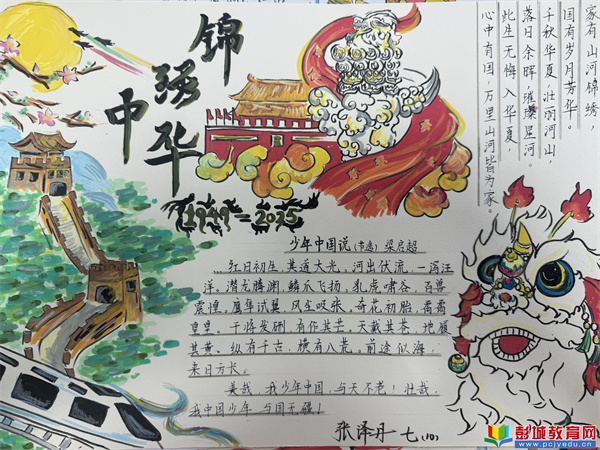 锦
强
中
华
1949—2025
家有山河锦绣，
国有岁月芳华。
千秋华夏，壮丽河山，
落日余晖，璀璨星河
此生无悔入华夏，
心中有国，万里山河皆为家。
少年中国说(节选) 梁启超
红日初生，其道大光。河出伏流，一泻汪
洋。潜龙腾渊，鳞爪飞扬。乳虎啸谷，百兽
震惶。鹰隼试翼，风尘吸张。奇花初胎，矞矞
皇皇。干将发硎，有作其芒。天戴其苍，地履
其黄。纵有千古，横有八荒。前途似海，
来日方长。
美哉，我少年中国，与天不老！壮哉，
我中国少年，与国无疆！
张泽丹 七(10)
彭城教育网
www.pcjyedu.cn